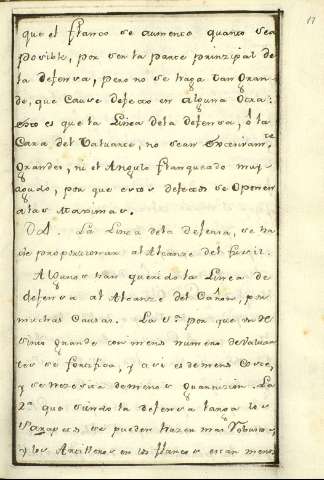 17
que el flanco se aumente quanto sea
posible, por ser la parte prinzipal de
la defensa, pero no se haga tan gran-
de, que cause defecto en alguna otra:
esto es que la Linea dela defensa, ô la
Cara del Baluarte, no sean excesivamte.
grandes, ni el Angulo flanqueado muy
agudo, por que estos defectos se oponen
alas Maximas.
La Linea dela defensa, se ha
de proporcionar al Alcanze del fusil.
Algunos han querido la Linea de
defensa al Alcanze del Cañon, por
muchas Causas. La 1ª por que un
sitio grande con menos numero de Baluar-
tes se fortifica, y assi es demenos Costo,
y se necesita demenos guarnizion. La
2ª que siendo la defensa larga los
Parapetos, se pueden hazer mas robustos,
y los Artilleros en los flancos estan menos